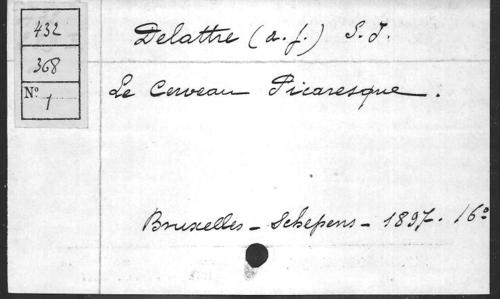 432
368
Nº 1
Delattre (a. f.) S. J.
Le Cerveau Picaresque.
Bruxelles - Schepens - 1897. 16º